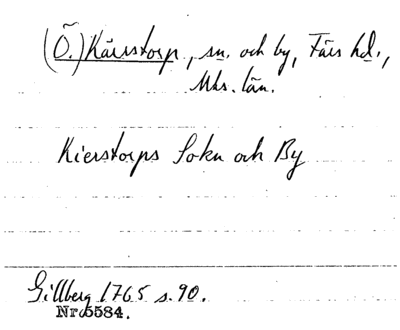 (Ö.) Kärrstorp, sn. och by, Färs hd.,
Mhs. län.
Kierstorps Sokn och By
Gillberg 1765 s.90.
Nr 5584.